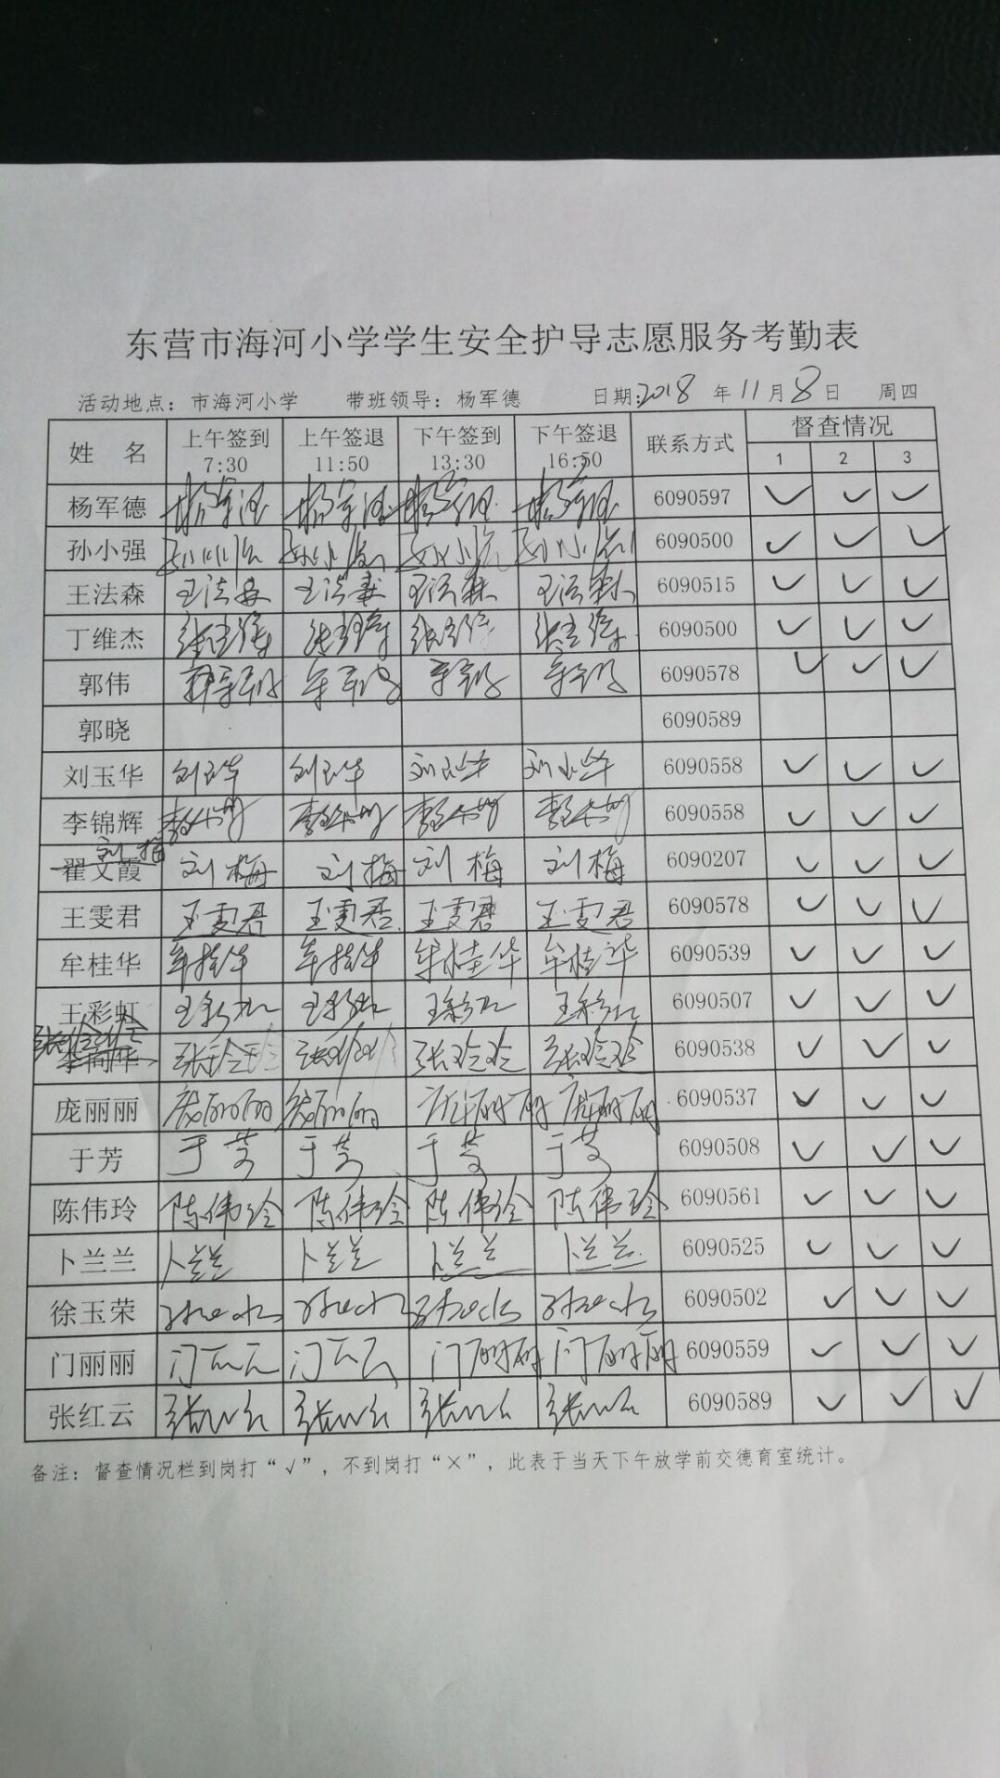 东营市海河小学学生安全护导志愿服务考勤表
活动地点：市海河小学 带班领导：杨军德 日期:2018 年 11 月 8 日 周四
姓 名 上午签到 7:30 上午签退 11:50 下午签到 13:30 下午签退 16:50 联系方式 督查情况 1 2 3
杨军德 杨军德 杨军德 杨军德 杨军德 6090597 ✓ ✓ ✓
孙小强 孙小强 孙小强 孙小强 孙小强 6090500 ✓ ✓ ✓
王法森 王法森 王法森 王法森 王法森 6090515 ✓ ✓ ✓
丁维杰 6090500 ✓ ✓ ✓
郭伟 6090578 ✓ ✓ ✓
郭晓 6090589
刘玉华 刘玉华 刘玉华 刘玉华 刘玉华 6090558 ✓ ✓ ✓
李锦辉 6090558 ✓ ✓ ✓
翟文霞 刘梅 刘梅 刘梅 刘梅 刘梅 6090207 ✓ ✓ ✓
王雯君 王雯君 王雯君 王雯君 王雯君 6090578 ✓ ✓ ✓
牟桂华 牟桂华 牟桂华 牟桂华 牟桂华 6090539 ✓ ✓ ✓
王彩虹 王彩虹 王彩虹 王彩虹 王彩虹 6090507 ✓ ✓ ✓
张玲玲 张玲玲 张玲玲 张玲玲 6090538 ✓ ✓ ✓
庞丽丽 庞丽丽 庞丽丽 庞丽丽 庞丽丽 6090537 ✓ ✓ ✓
于芳 于芳 于芳 于芳 于芳 6090508 ✓ ✓ ✓
陈伟玲 陈伟玲 陈伟玲 陈伟玲 陈伟玲 6090561 ✓ ✓ ✓
卜兰兰 卜兰兰 卜兰兰 卜兰兰 卜兰兰 6090525 ✓ ✓ ✓
徐玉荣 6090502 ✓ ✓ ✓
门丽丽 门丽丽 门丽丽 门丽丽 门丽丽 6090559 ✓ ✓ ✓
张红云 张红云 张红云 张红云 张红云 6090589 ✓ ✓ ✓
备注：督查情况栏到岗打“√”，不到岗打“×”，此表于当天下午放学前交德育室统计。